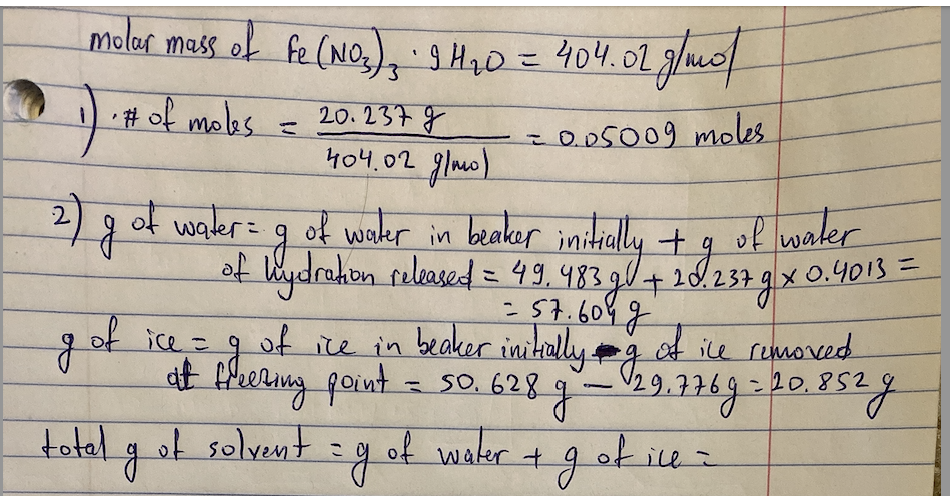 molar mass of Fe(NO₃)₃ · 9H₂O = 404.02 g/mol
1) · # of moles = 20.237 g / 404.02 g/mol = 0.05009 moles
2) g of water = g of water in beaker initially + g of water
of hydration released = 49.483 g + 20.237 g x 0.4013 =
= 57.604 g
g of ice = g of ice in beaker initially - g of ice removed
at freezing point = 50.628 g - 29.776 g = 20.852 g
total g of solvent = g of water + g of ice =